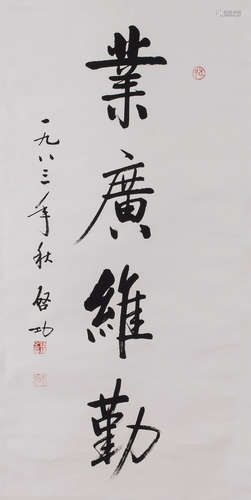 業廣維勤
一九八三年秋 啓功